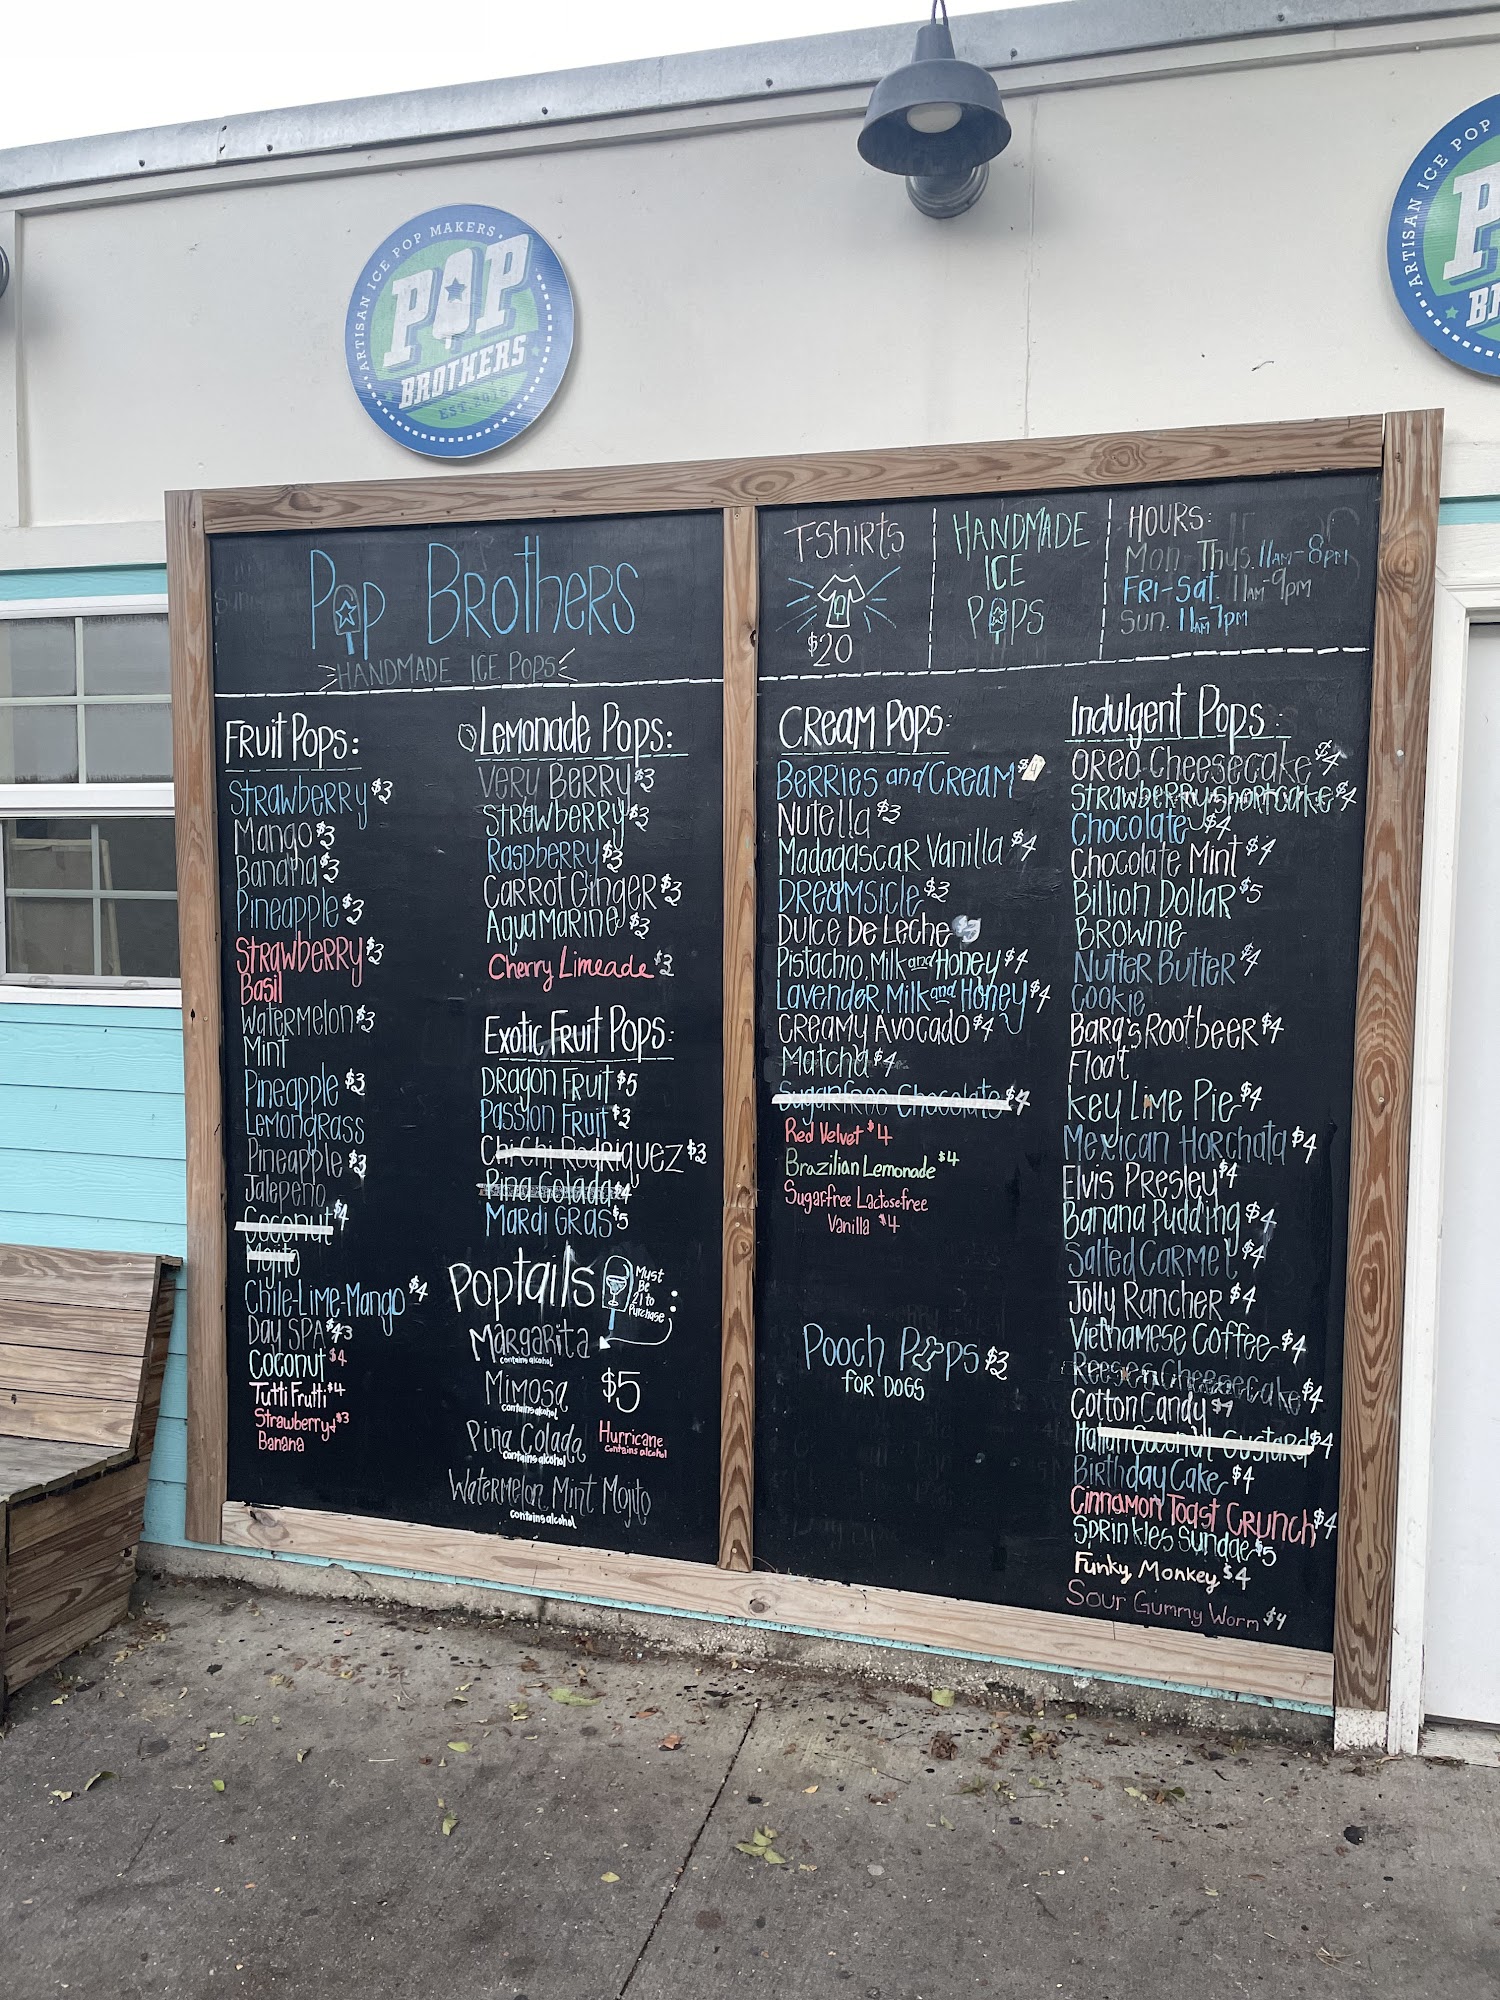 ARTISAN ICE POP MAKERS
POP
BROTHERS
EST. 2013
ARTISAN ICE POP
Pop Brothers
HANDMADE ICE POPS
T-Shirts
$20
HANDMADE
ICE
POPS
HOURS:
Mon-Thus. 11AM-8pm
FRI-Sat. 11AM-9pm
Sun. 11AM-7pm
Fruit Pops:
Strawberry $3
Mango $3
Banana $3
Pineapple $3
Strawberry $3
Basil
Watermelon $3
Mint
Pineapple $3
Lemongrass
Pineapple $3
Jalepeno
Coconut $4
Mojito
Chile-Lime-Mango $4
Day SPA
Coconut $4
Tutti Frutti $4
Strawberry $3
Banana
Lemonade Pops:
Very Berry $3
Strawberry $3
Raspberry $3
Carrot Ginger $3
AquaMarine $3
Cherry Limeade $3
Exotic Fruit Pops:
Dragon Fruit $5
Passion Fruit $3
Chi Chi Rodriguez $3
Pina Colada $4
Mardi Gras $5
Poptails
Must
Be
21 to
Purchase
Margarita
contains alcohol
Mimosa $5
contains alcohol
Pina Colada
contains alcohol
Hurricane
contains alcohol
Watermelon Mint Mojito
contains alcohol
Cream Pops:
Berries and Cream
Nutella $3
Madagascar Vanilla $4
Dreamsicle $3
Dulce De Leche
Pistachio, Milk and Honey $4
Lavender, Milk and Honey $4
Creamy Avocado $4
Matcha $4
Sugarfree Chocolate $4
Red Velvet $4
Brazilian Lemonade $4
Sugarfree Lactosefree
Vanilla $4
Pooch Pops $3
for DOGS
Indulgent Pops:
Oreo Cheesecake $4
Strawberry Shortcake $4
Chocolate $4
Chocolate Mint $4
Billion Dollar $5
Brownie
Nutter Butter $4
Cookie
Barq's Rootbeer $4
Float
Key Lime Pie $4
Mexican Horchata $4
Elvis Presley $4
Banana Pudding $4
Salted Carmel $4
Jolly Rancher $4
Vietnamese Coffee $4
Reeses Cheesecake $4
Cotton Candy $4
Italian Coconut Custard $4
Birthday Cake $4
Cinnamon Toast Crunch $4
Sprinkles Sundae $5
Funky Monkey $4
Sour Gummy Worm $4